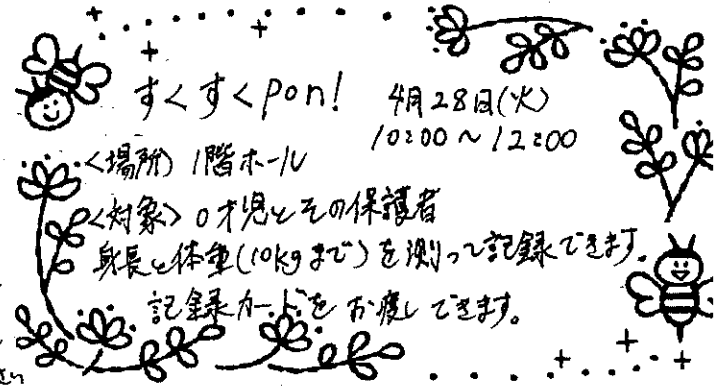 すくすくpon!
4月28日(火)
10:00～12:00
<場所> 1階ホール
<対象> 0才児とその保護者
身長と体重(10kgまで)を測って記録できます。
記録カードをお渡しできます。
さい